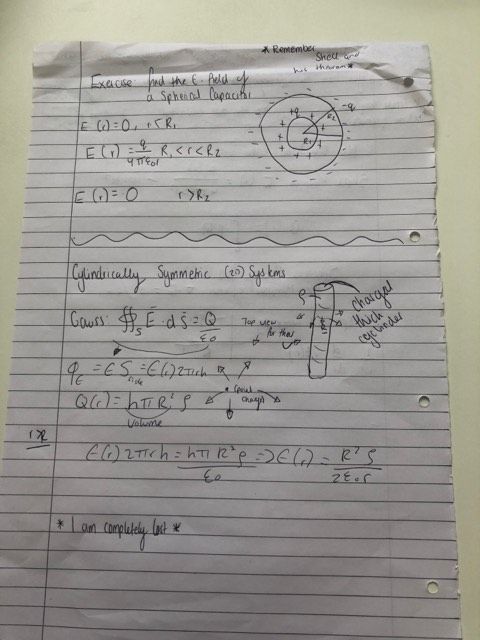 * Remember
Shell and
his theorem *
Exercise: find the E-field of
a Spherical Capacitor
E (r) = 0, r < R₁
E (r) = q/4πε₀r R₁ < r < R₂
E (r) = 0 r > R₂
+q
-q
R₂
R₁
Cylindrically Symmetric (2D) Systems
Gauss: ∯S E⃗ · dS⃗ = Q/ε₀
Top view
further
ρ
charged
thick
cylinder
ΦE = E Sside = E(r) 2πrh
Q(r) = hπR²ρ
Volume
charge
r>R
E(r) 2πrh = hπR²ρ/ε₀ => E(r) = R²ρ/2ε₀r
* I am completely lost *